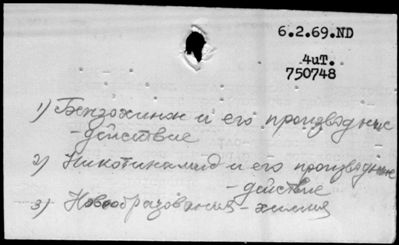 6.2.69.ND
4иТ.
750748
1) Бензохинон и его производные
- действие
2) Никотинамид и его производные
- действие
3) Новообразования - химия